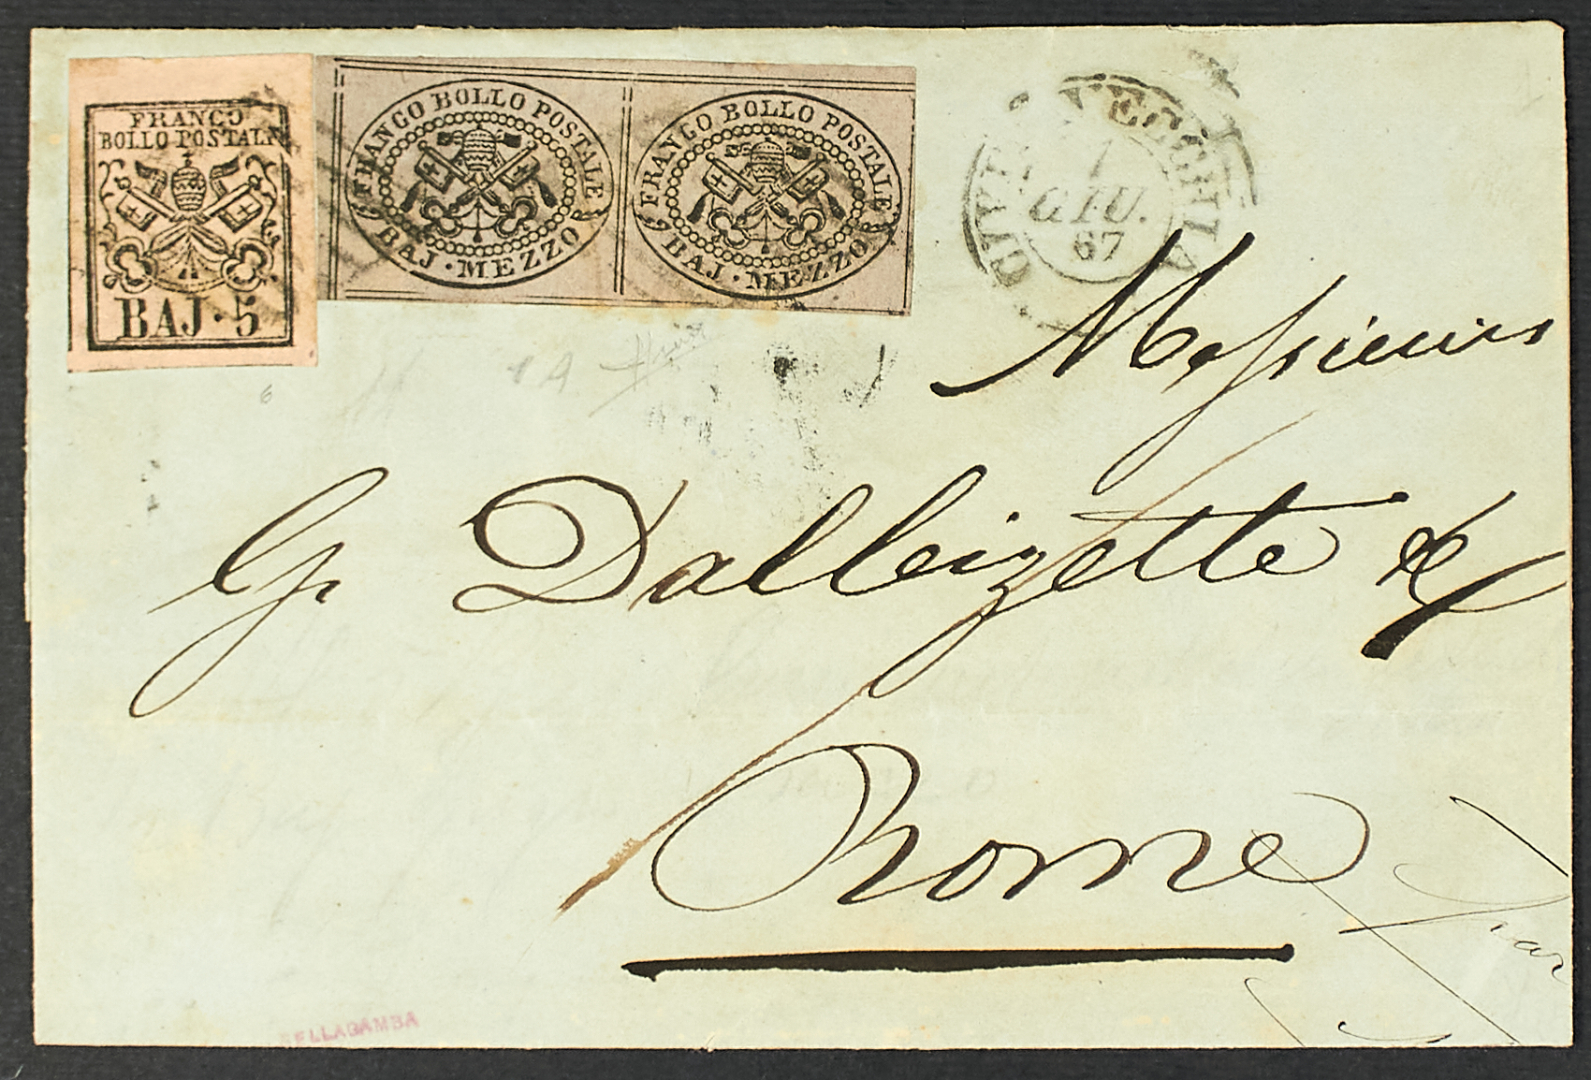 FRANCO
BOLLO POSTALE
BAJ · 5
FRANCO BOLLO POSTALE
BAJ · MEZZO
FRANCO BOLLO POSTALE
BAJ · MEZZO
CIVITAVECCHIA
1
GIU.
67
Messieurs
G. Dalbizette &
Rome
BELLAGAMBA